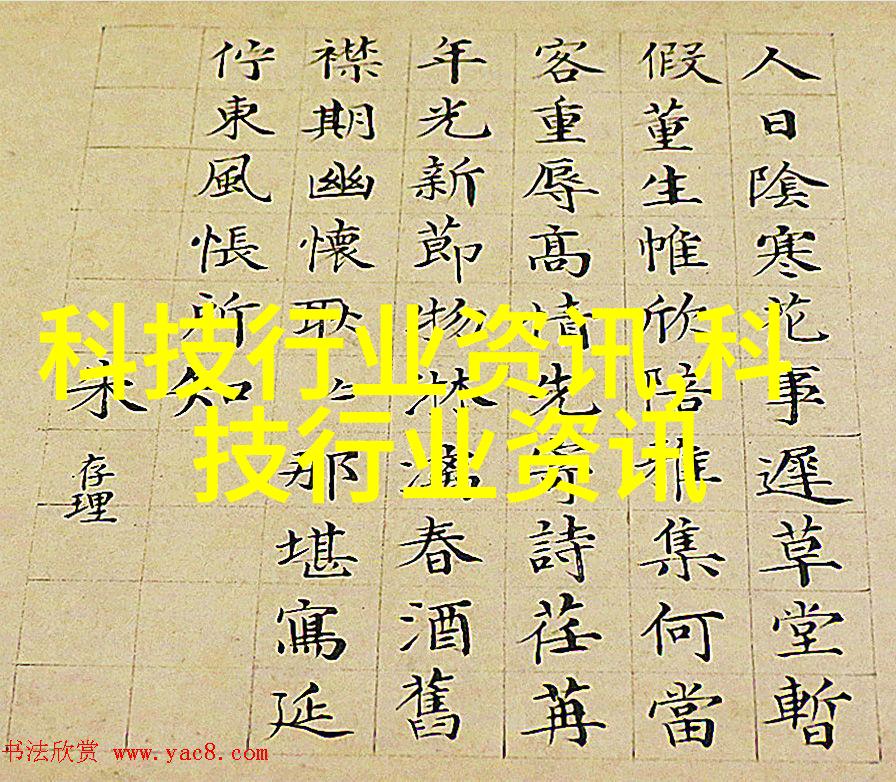 人日陰寒花事遲草堂暫
假董生帷欣陪雅集何當
客重辱高情先寄詩荏苒
年光新節物淋漓春酒舊
襟期幽懷耿〻那堪寫延
佇東風悵所知
未
存理
科技行业资讯,科
技行业资讯
书法欣赏 www.yac8.com